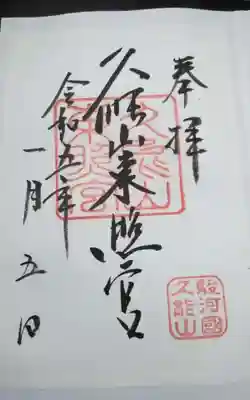 奉拝
久能山東照宮
令和五年
一月五日
駿河國
久能山